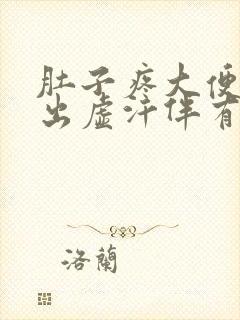 肚子疼大便
出虚汗伴有
洛蘭